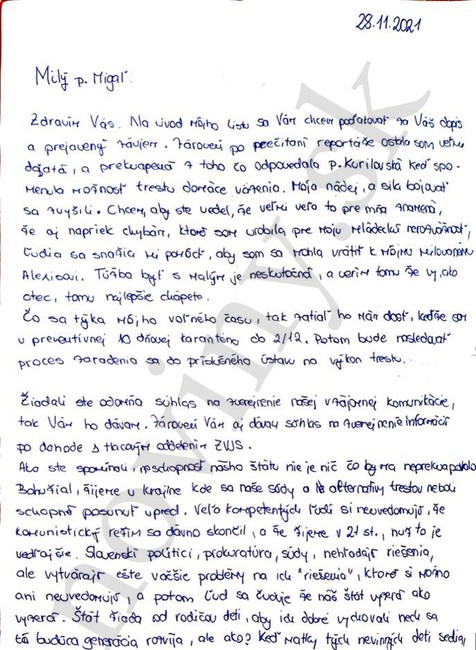 28.11.2021
Milý p. Migaľ.
Zdravím Vás. Na úvod môjho listu sa Vám chcem poďakovať za Váš dopis
a prejavený záujem. Zároveň po prečítaní reportáže ostala som veľmi
dojatá, a prekvapená z toho čo odpovedala p. Kurilovská keď spo-
menula možnosť trestu domáce väzenia. Moja nádej, a sila bojovať
sa zvýšili. Chcem, aby ste vedel, že veľmi veľa to pre mňa znamená,
že aj napriek chybám, ktoré som urobila pre moju mladeckú nerozvážnosť,
ľudia sa snažia mi pomôcť, aby som sa mohla vrátiť k môjmu milovanému
Alexisovi. Túžba byť s malým je neskutočná, a verím tomu že vy, ako
otec, tomu najlepšie chápete.
Čo sa týka môjho voľného času, tak zatiaľ ho mám dosť, keďže som
v preventívnej 10 dňovej karanténe do 2/12. Potom bude nasledovať
proces zaradenia sa do príslušného ústavu na výkon trestu.
Žiadali ste odomňa súhlas na zverejnenie našej vzájomnej komunikácie,
tak Vám ho dávam. Zároveň Vám aj dávam súhlas na zverejnenie informácií
po dohode s tlačovým oddelením ZVJS.
Ako ste spomínali neschopnosť nášho štátu nie je nič čo by ma neprekvapovalo
Bohužiaľ, žijeme v krajine kde sa naše súdy a alternatívy trestov neboli
schopné posunúť vpred. Veľa kompetentných ľudí si neuvedomujú, že
komunistický režim sa dávno skončil, a že žijeme v 21 st., nuž to je
vedľajšie. Slovenskí politici, prokuratúra, súdy, nehľadajú riešenia,
ale vytvárajú ešte väčšie problémy na ich "riešenia", ktoré si možno
ani neuvedomujú, a potom ľud sa čuduje že náš štát vyzerá ako
vyzerá. Štát žiada od rodičov detí, aby ich dobre vychovali nech sa
tá budúca generácia rozvíja, ale ako? Keď matky tých nevinných detí sedia,
noviny.sk